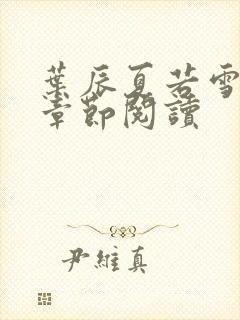 葉辰夏若雪
章節閱讀
尹維真